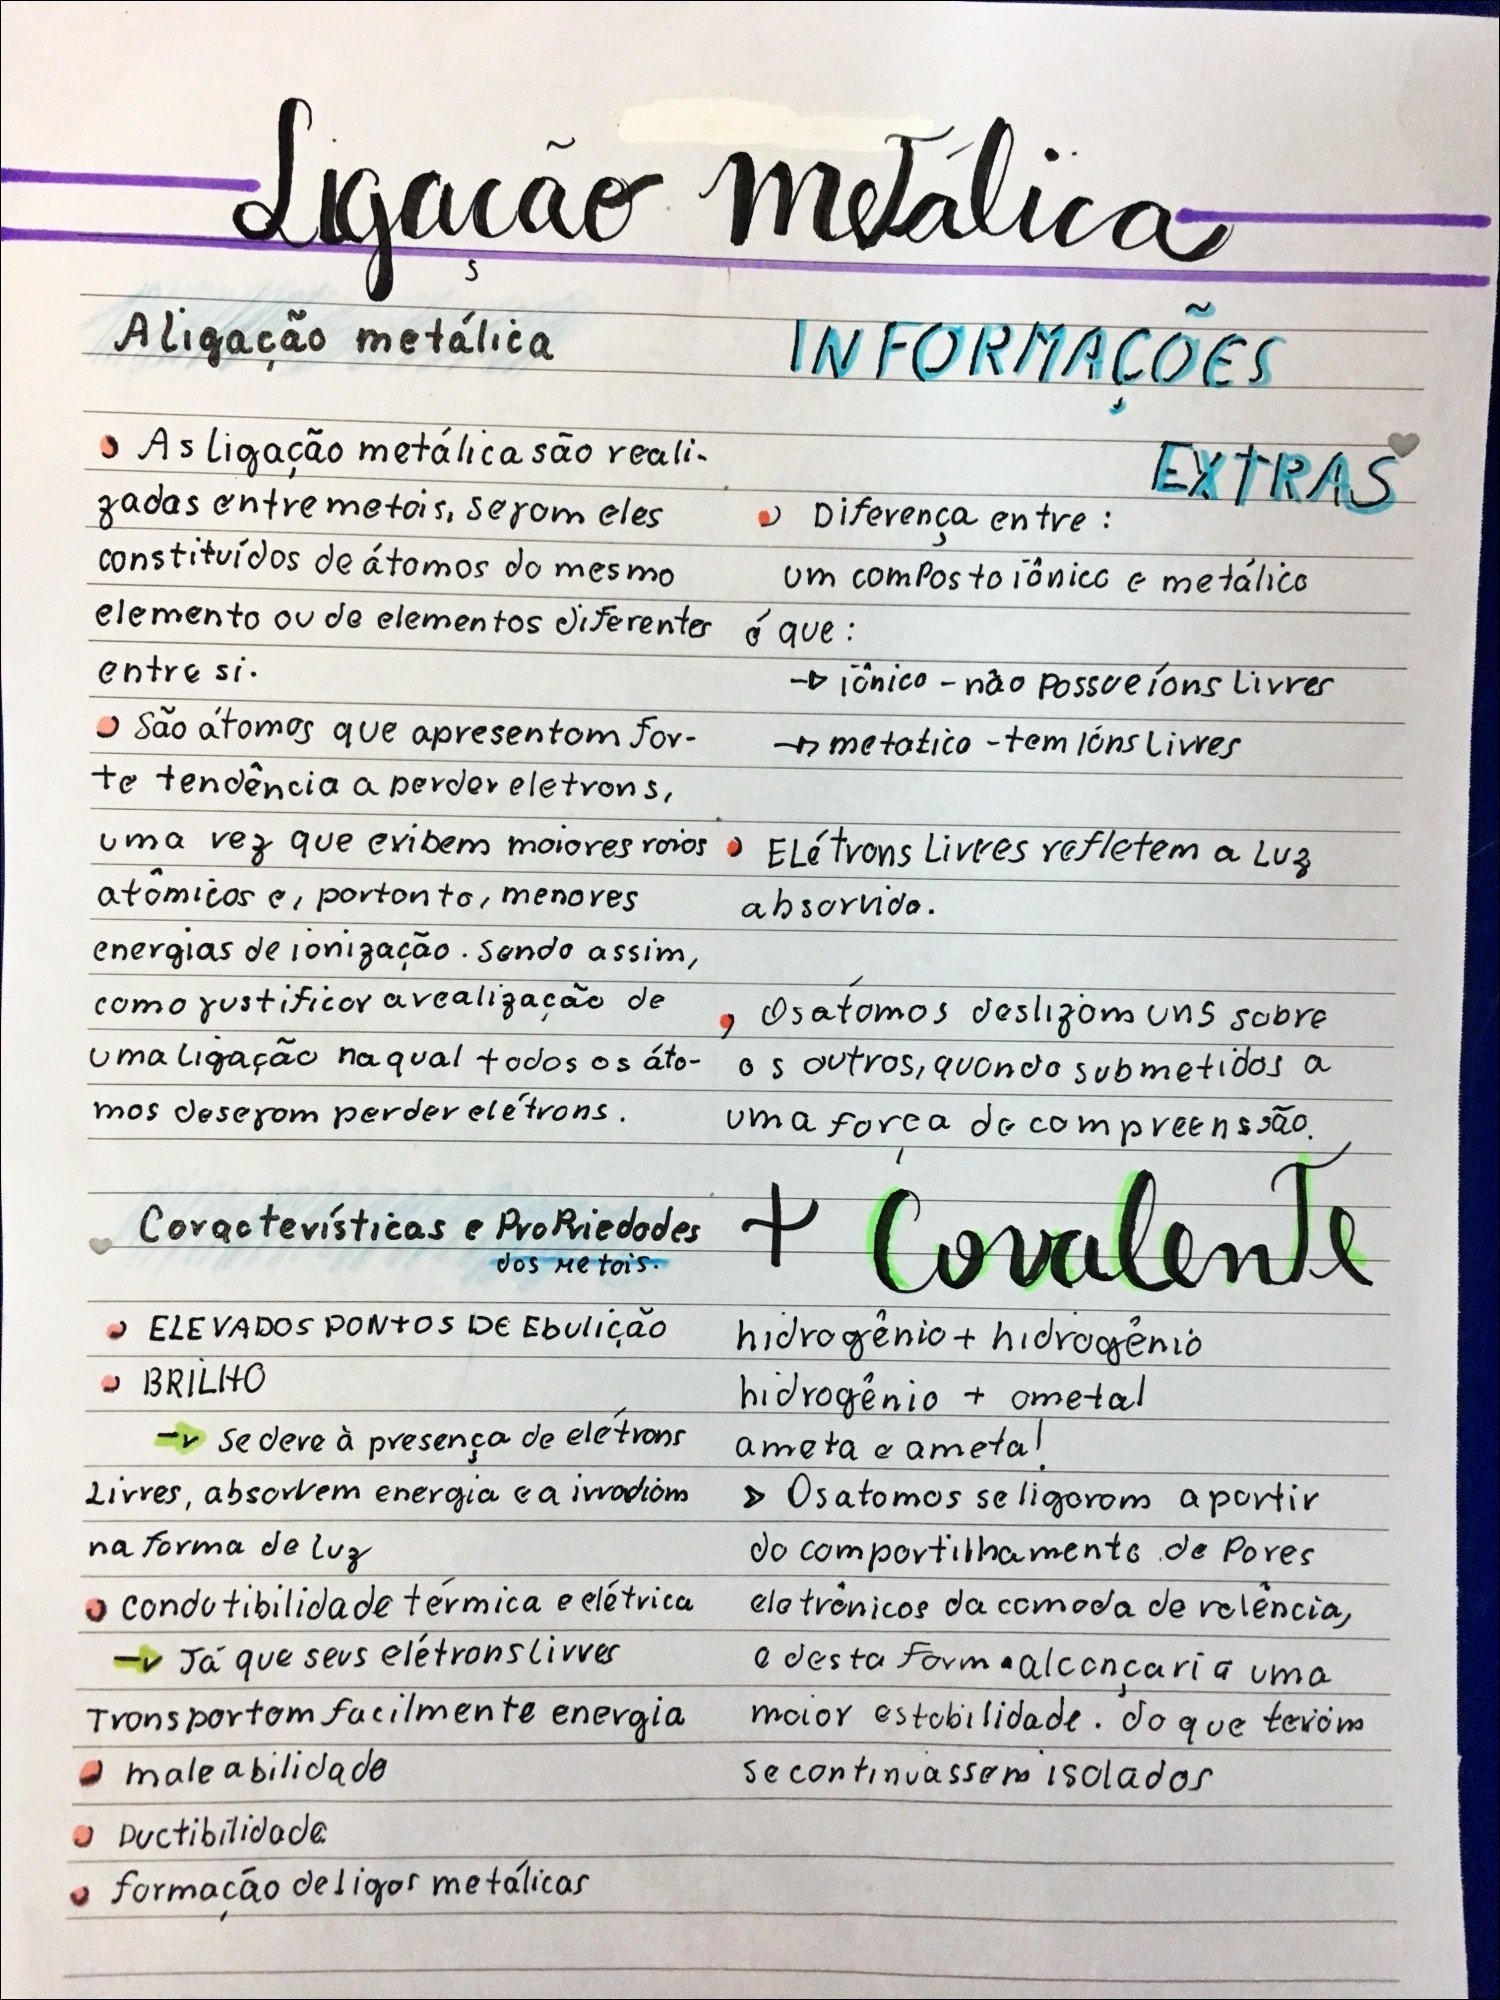 Ligação metálica
A ligação metálica
• As ligação metálica são reali-
zadas entre metais, sejam eles
constituídos de átomos do mesmo
elemento ou de elementos diferentes
entre si.
• São átomos que apresentam for-
te tendência a perder eletrons,
uma vez que exibem maiores raios
atômicos e, portanto, menores
energias de ionização. Sendo assim,
como justificar a realização de
uma ligação na qual todos os áto-
mos desejam perder elétrons.
Características e Propriedades
dos Metais.
• ELEVADOS PONTOS DE Ebulição
• BRILHO
→ Se deve à presença de elétrons
Livres, absorvem energia e a irradiam
na forma de luz
• condutibilidade térmica e elétrica
→ Já que seus elétrons livres
Transportam facilmente energia
• maleabilidade
• Ductibilidade
• formação de ligas metálicas
INFORMAÇÕES
EXTRAS
• Diferença entre :
um composto iônico e metálico
é que :
→ iônico - não possue íons Livres
→ metatico - tem íons Livres
• Elétrons Livres refletem a Luz
absorvida.
• Os átomos deslizam uns sobre
os outros, quando submetidos a
uma força de compreenssão.
+ Covalente
hidrogênio + hidrogênio
hidrogênio + ametal
ameta e ametal
> Os atomos se ligaram a partir
do compartilhamento de Pares
eletrônicos da camada de valência,
e desta forma alcançaria uma
maior estabilidade. do que teriam
se continuassem isolados